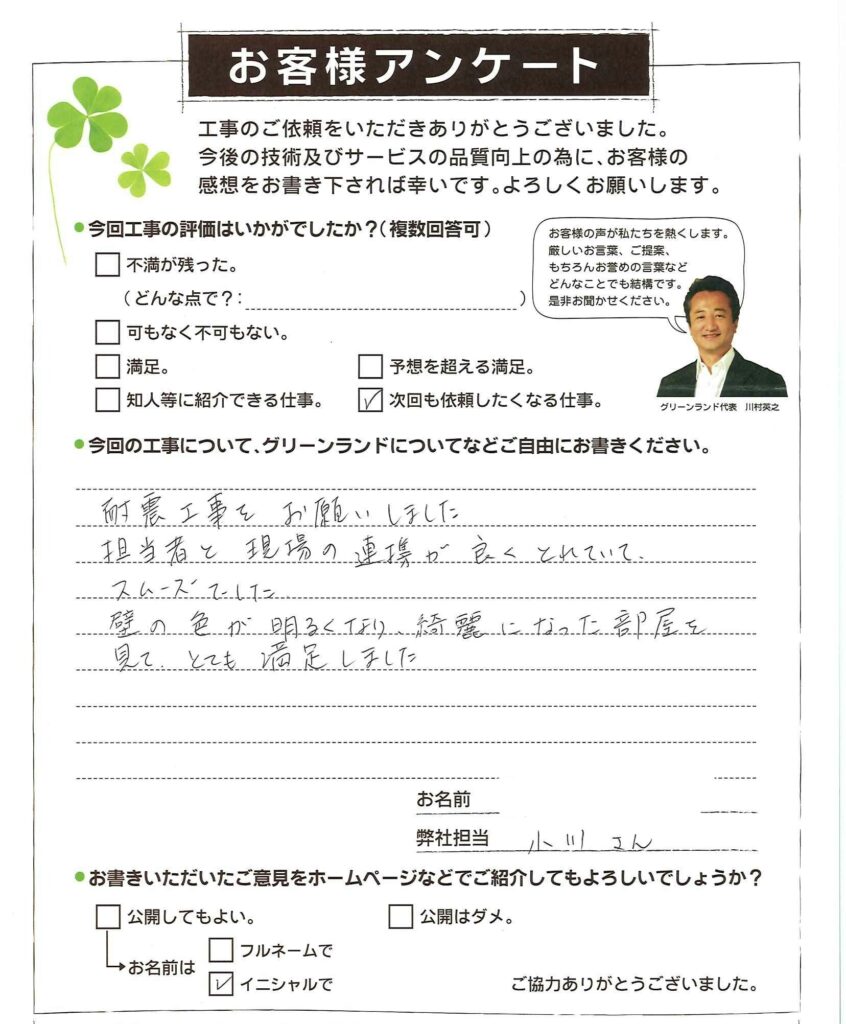 お客様アンケート
工事のご依頼をいただきありがとうございました。
今後の技術及びサービスの品質向上の為に、お客様の
感想をお書き下されば幸いです。よろしくお願いします。
今回工事の評価はいかがでしたか？（複数回答可）
不満が残った。
（どんな点で？：　）
可もなく不可もない。
満足。
予想を超える満足。
知人等に紹介できる仕事。
次回も依頼したくなる仕事。
お客様の声が私たちを熱くします。
厳しいお言葉、ご提案、
もちろんお誉めの言葉など
どんなことでも結構です。
是非お聞かせください。
グリーンランド代表　川村英之
今回の工事について、グリーンランドについてなどご自由にお書きください。
耐震工事を お願いしました
担当者と 現場の 連携が 良く とれていて、
スムーズでした
壁の 色が 明るくなり、綺麗になった部屋を
見て、とても 満足しました
お名前
弊社担当　小川さん
お書きいただいたご意見をホームページなどでご紹介してもよろしいでしょうか？
公開してもよい。
公開はダメ。
お名前は
フルネームで
イニシャルで
ご協力ありがとうございました。